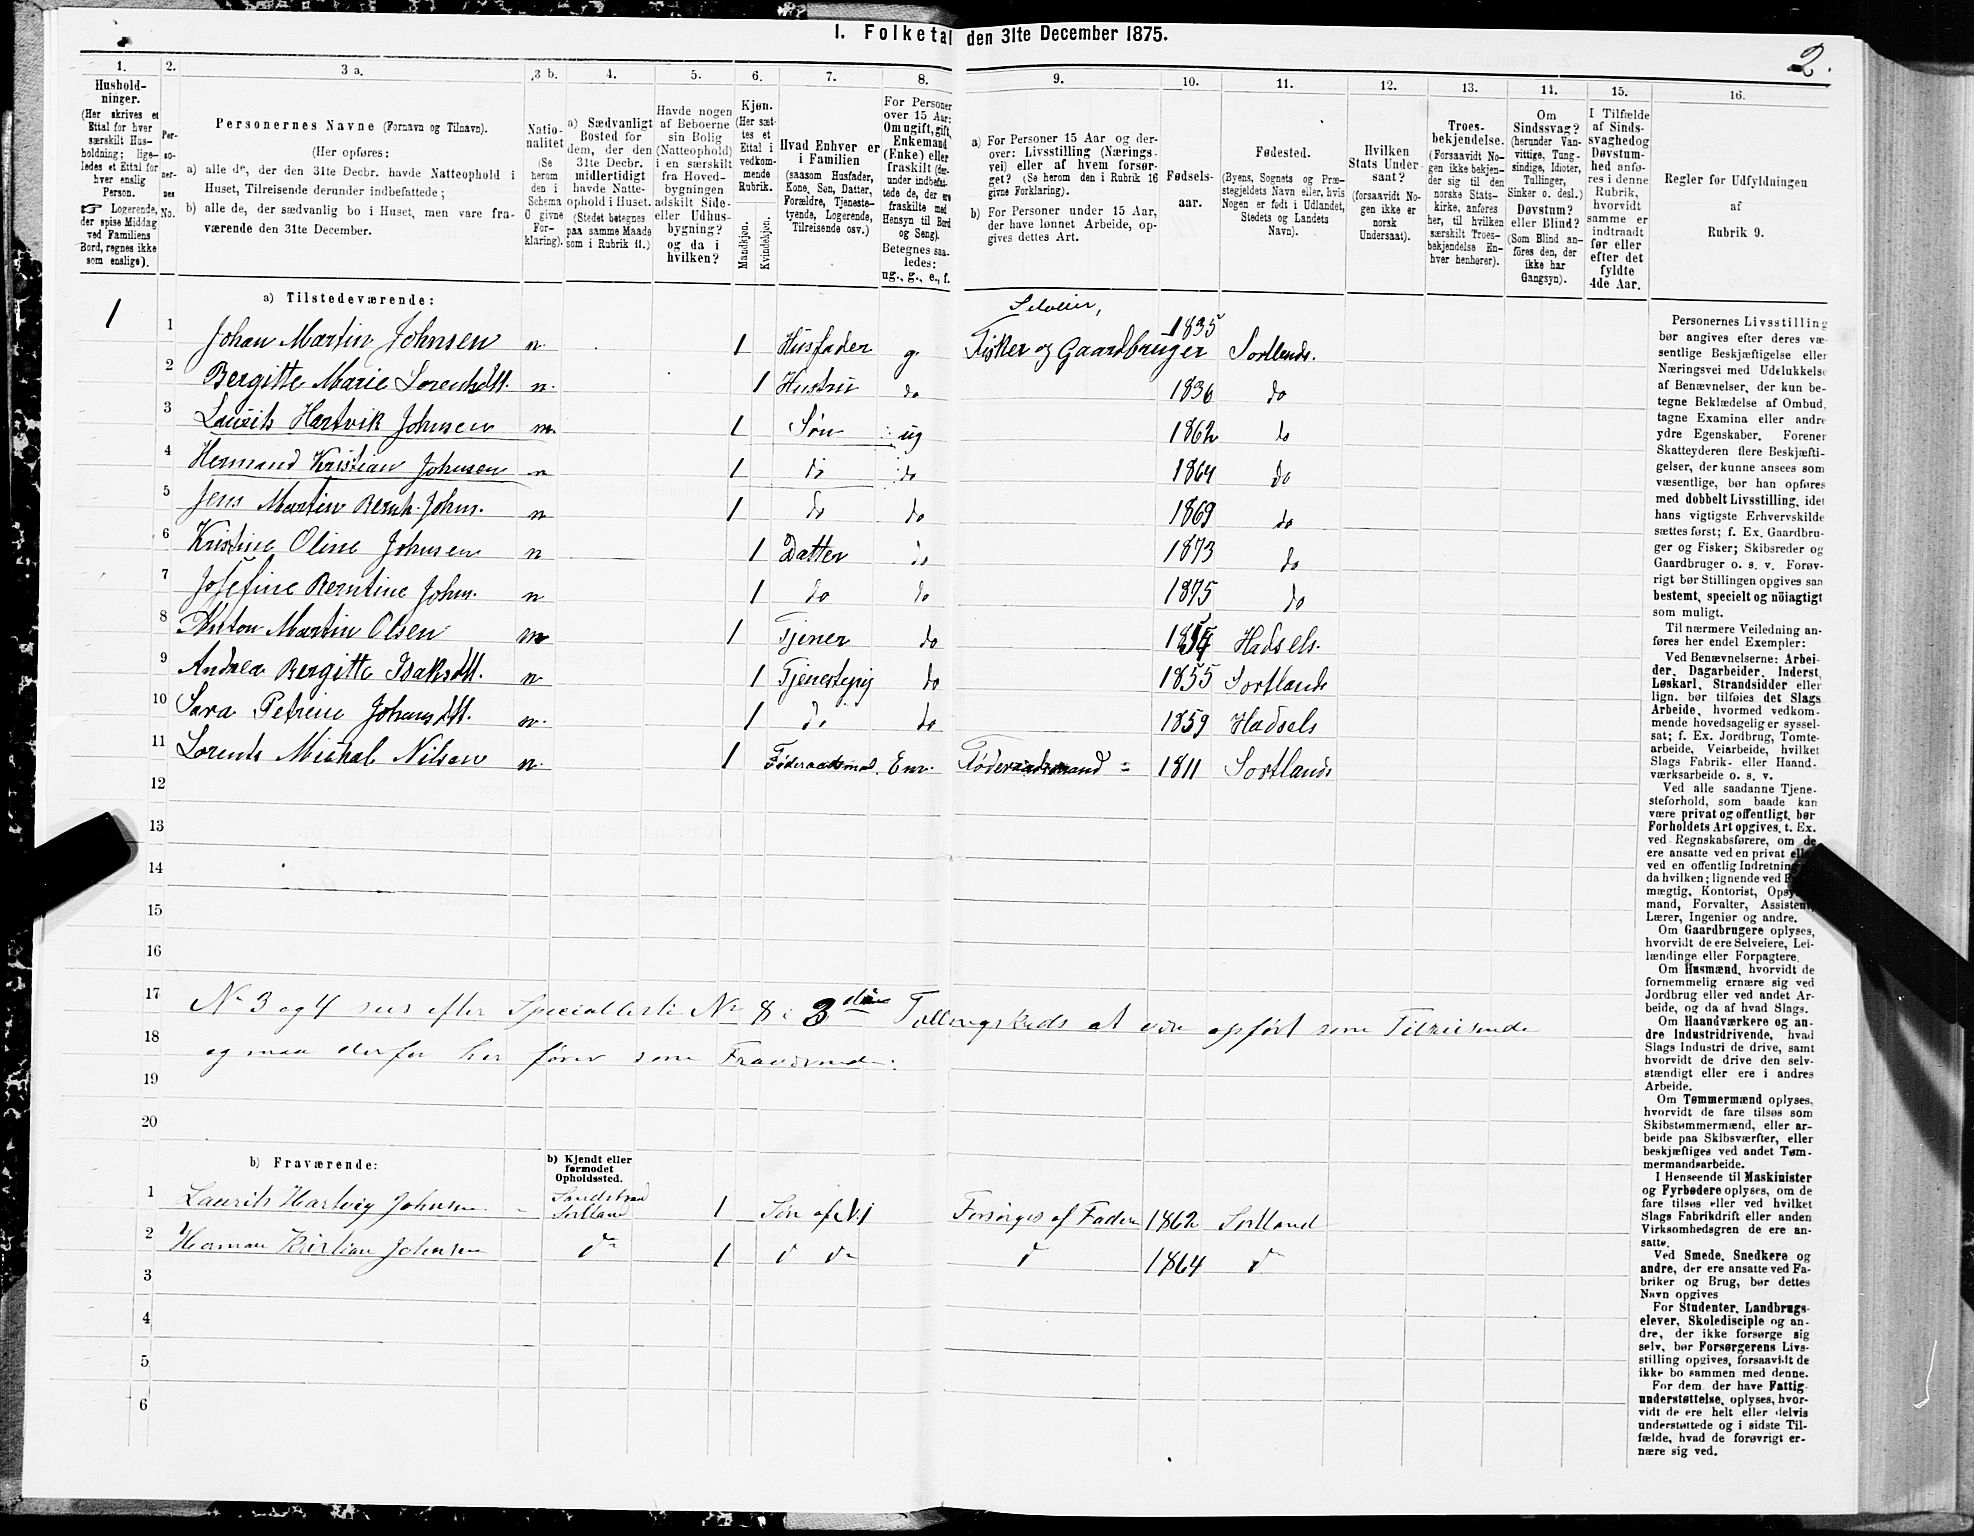 1. Folketal den 31te December 1875.
2.
1.
Hushold-
ninger.
(Her skrives et
Ettal for hver
særskilt Hus-
holdning; lige-
ledes et Ettal for
hver enslig
Person.
☞ Logerende,
der spise Middag
ved Familiens
Bord, regnes ikke
som enslige).
2.
Per-
so-
ner-
nes
No.
3 a.
Personernes Navne (Fornavn og Tilnavn).
(Her opføres:
a) alle de, der den 31te Decbr. havde Natteophold i
Huset, Tilreisende derunder indbefattede;
b) alle de, der sædvanlig bo i Huset, men vare fra-
værende den 31te December.
3 b.
Natio-
nalitet
(Se
herom
den i
Schema
O givne
For-
klaring).
4.
a) Sædvanligt
Bosted for
dem, der den
31te Decbr.
midlertidigt
havde Natte-
ophold i Huset.
(Stedet betegnes
paa samme Maade
som i Rubrik 11.)
5.
Havde nogen
af Beboerne
sin Bolig
(Natteophold)
i en særskilt
fra Hoved-
bygningen
adskilt Side-
eller Udhus-
bygning?
og da i
hvilken?
6.
Kjøn.
(Her sæt-
tes et
Ettal i
vedkom-
mende
Rubrik.
Mandkjøn.
Kvindekjøn.
7.
Hvad Enhver er
i Familien
(saasom Husfader,
Kone, Søn, Datter,
Forældre, Tjeneste-
tyende, Logerende,
Tilreisende osv.)
8.
For Personer
over 15 Aar:
Om ugift, gift,
Enkemand
(Enke) eller
fraskilt (der-
under indbefat-
tede de, der ere
fraskilte med
Hensyn til Bord
og Seng).
Betegnes saa-
ledes:
ug., g., e., f.
9.
a) For Personer 15 Aar og der-
over: Livsstilling (Nærings-
vei) eller af hvem forsør-
get? (Se herom den i Rubrik 16
givne Forklaring).
b) For Personer under 15 Aar,
der have lønnet Arbeide, op-
gives dettes Art.
10.
Fødsels-
aar.
11.
Fødested.
(Byens, Sognets og Præ-
stegjeldets Navn eller, hvis
Nogen er født i Udlandet,
Stedets og Landets
Navn).
12.
Hvilken
Stats Under-
saat?
(forsaavidt No-
gen ikke er
norsk
Undersaat).
13.
Troes-
bekjendelse.
(Forsaavidt No-
gen ikke bekjen-
der sig til den
norske Stats-
kirke, anføres
her, til hvilken
særskilt Troes-
bekjendelse En-
hver henhører).
14.
Om
Sindssvag?
(herunder Van-
vittige, Tung-
sindige, Idioter,
Tullinger,
Sinker o. desl.)
Døvstum?
eller Blind?
(Som Blind an-
føres den, der
ikke har
Gangsyn).
15.
I Tilfælde
af Sinds-
svaghed og
Døvstum-
hed anfø-
res i denne
Rubrik,
hvorvidt
samme er
indtraadt
før eller
efter det
fyldte
4de Aar.
16.
Regler for Udfyldningen
af
Rubrik 9.
a) Tilstedeværende:
Selveier,
1 1 Johan Martin Johnsen n. 1 Husfader g. Fisker og Gaardbruger 1835 Sortlands.
2 Bergitte Marie Lorentsdtt. n. 1 Hustru do 1836 do
3 Laurits Hartvik Johnsen n. 1 Søn ug 1862 do
4 Hermand Kristian Johnsen n 1 do do 1864 do
5 Jens Martin Bernh. Johns. n 1 do do 1869 do
6 Kristine Oline Johnsen n 1 Datter do 1873 do
7 Josefine Berntine Johns. n 1 do do 1875 do
8 Anton Martin Olsen n 1 Tjener do 1854 Hadsels.
9 Andrea Bergitte Isaksdtt. n 1 Tjenestepig do 1855 Sortlands
10 Sara Petrine Johansdtt. n. 1 do do 1859 Hadsels
11 Lorents Michal Nilsen n. 1 Føderaadsmd. Em. Føderaadsmand 1811 Sortlands
12
13
14
15
16
17 No 3 og 4 sees efter Specialliste No 8 i 3die Tællingskreds at være opført som Tilreisende
18 og maa derfor her føres som Fraværende.
19
20
b) Fraværende:
b) Kjendt eller
formodet
Opholdssted.
1 Laurits Hartvig Johnsen Sandstrand Sortland 1 Søn af No 1 Forsørges af Fader 1862 Sortland
2 Herman Kristian Johnsen do 1 do do do 1864 do
3
4
5
6
Personernes Livsstilling
bør angives efter deres væ-
sentlige Beskjæftigelse eller
Næringsvei med Udelukkelse
af Benævnelser, der kun be-
tegne Beklædelse af Ombud,
tagne Examina eller andre
ydre Egenskaber. Forener
Skatteyderen flere Beskjæfti-
gelser, der kunne ansees som
væsentlige, bør han opføres
med dobbelt Livsstilling, idet
hans vigtigste Erhvervskilde
sættes først; f. Ex. Gaardbru-
ger og Fisker; Skibsreder og
Gaardbruger o. s. v. Forøv-
rigt bør Stillingen opgives saa
bestemt, specielt og nöiagtigt
som muligt.
Til nærmere Veiledning an-
føres her endel Exempler:
Ved Benævnelserne: Arbei-
der, Dagarbeider, Inderst,
Løskarl, Strandsidder eller
lign. bør tilføies det Slags
Arbeide, hvormed vedkom-
mende hovedsagelig er syssel-
sat; f. Ex. Jordbrug, Tomte-
arbeide, Veiarbeide, hvilket
Slags Fabrik- eller Haand-
værksarbeide o. s. v.
Ved alle saadanne Tjene-
steforhold, som baade kan
være privat og offentligt, bør
Forholdets Art opgives, t. Ex.
ved Regnskabsførere, om de
ere ansatte ved en privat eller
ved en offentlig Indretning
da hvilken; lignende ved
mægtig, Kontorist, Opsyns-
mand, Forvalter, Assistent,
Lærer, Ingeniør og andre.
Om Gaardbrugere oplyses,
hvorvidt de ere Selveiere, Lei-
lændinge eller Forpagtere.
Om Husmænd, hvorvidt de
fornemmelig ernære sig ved
Jordbrug eller ved andet Ar-
beide, og da af hvad Slags.
Om Haandværkere og an-
dre Industridrivende, hvad
Slags Industri de drive, samt
hvorvidt de drive den selv-
stændigt eller ere i andres
Arbeide.
Om Tømmermænd oplyses,
hvorvidt de fare tilsøs som
Skibstømmermænd, eller ar-
beide paa Skibsværfter, eller
beskjæftiges ved andet Tøm-
mermandsarbeide.
I Henseende til Maskinister
og Fyrbødere oplyses, om de
fare tilsøs eller ved hvilket
Slags Fabrikdrift eller anden
Virksomhedsgren de ere an-
satte.
Ved Smede, Snedkere og
andre, der ere ansatte ved Fa-
briker og Brug, bør dettes
Navn opgives
For Studenter, Landbrugs-
elever, Skoledisciple og an-
dre, der ikke forsørge sig
selv, bør Forsørgerens Livs-
stilling opgives, forsaavidt de
ikke bo sammen med denne.
For dem, der have Fattig-
understøttelse, oplyses, hvor-
vidt de ere helt eller delvis
understøttede og i sidste Til-
fælde, hvad de forøvrigt er-
nære sig ved.